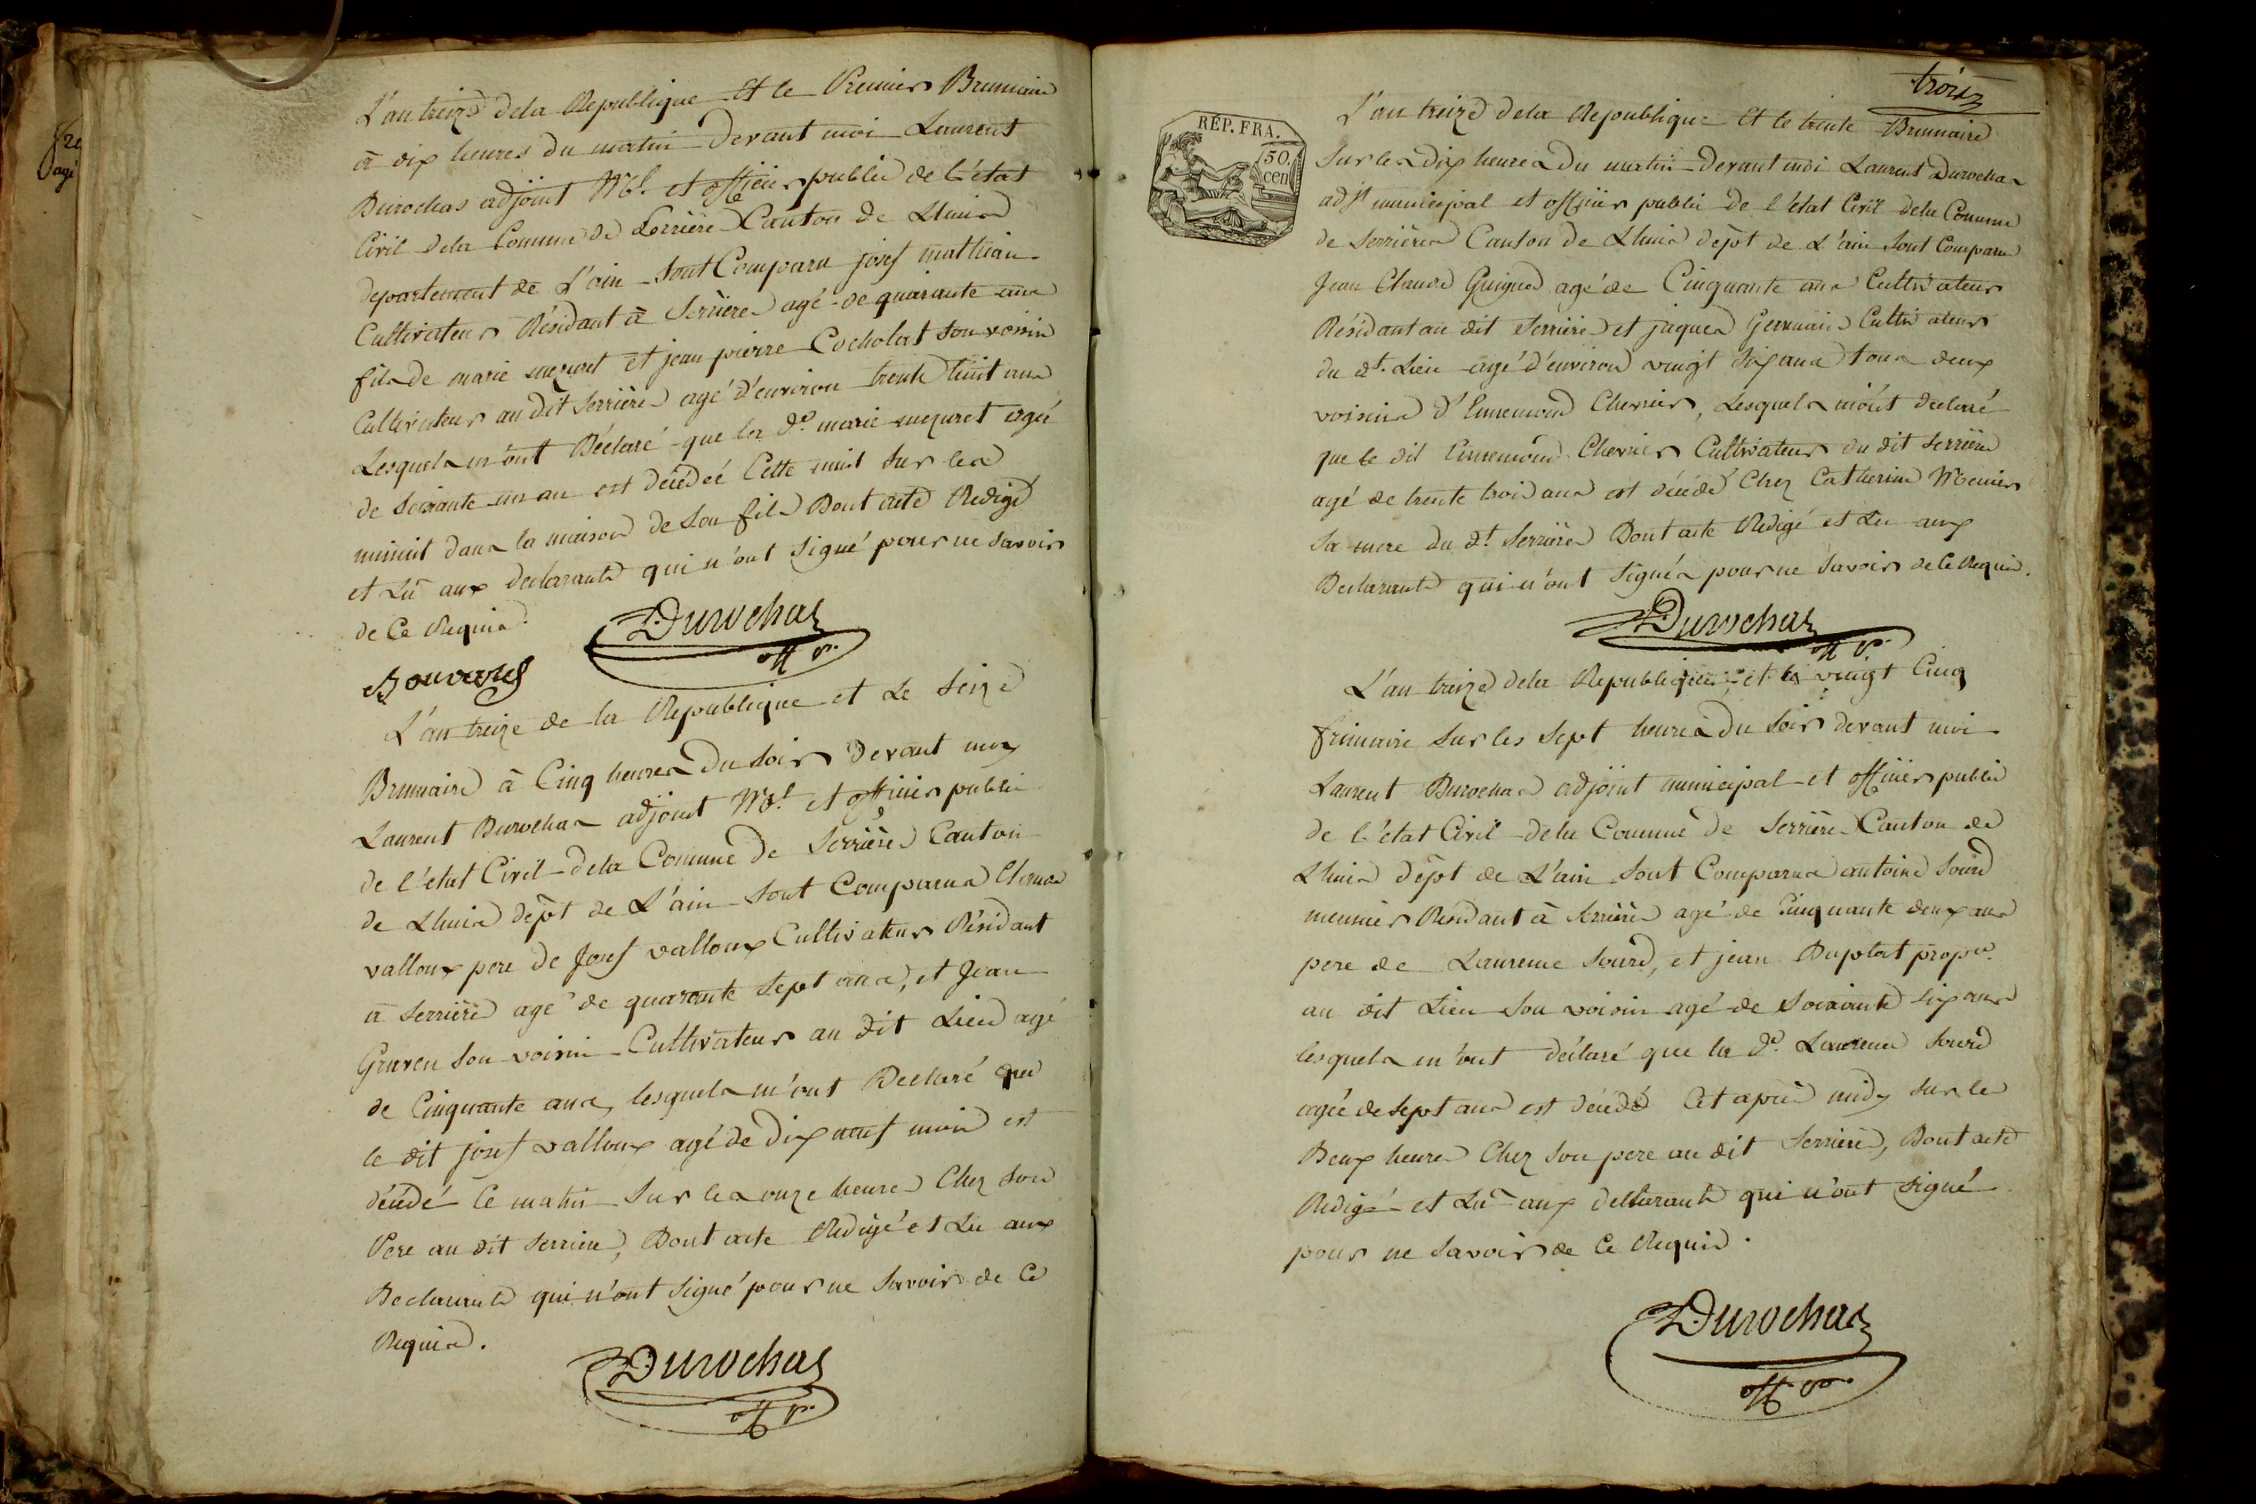 L'an treize dela Republique et le Premier Brumaire
à dix heures du matin devant moi Laurent
Durochas adjoint M.l et officier public de l'état
Civil dela Comune de Serriere Canton de Lhuis
departement de L'ain sont Comparu josef mathian
Cultivateur Résidant à Serriere agé de quarante ans
fils de marie mezuret et jean pierre Cocholat son voisin
Cultivateur au dit Serriere agé d'environ trente huit ans
Lesquels m'ont Déclaré que la d.e marie mezuret agée
de soixante un an est décédeé Cette nuit sur les
minuit dans la maison de son fils Dont acte Redigé
et Lû aux declarants qui n'ont signé pour ne savoir
de Ce Requis.
Durochas
off p.
Bouvard
L'an treize de la Republique et Le seize
Brumaire à Cinq heures du soir devant moy
Laurent Durochas adjoint M.l et officier public
de l'etat Civil dela Comune de Serriere Canton
de Lhuis dept de L'ain sont Comparus
valloux pere de Josef valloux Cultivateur Résidant
à Serriere agé de quarante sept ans, et Jean
Graven son voisin Cultivateur au dit Lieu agé
de Cinquante ans, lesquels m'ont Declaré que
le dit josef valloux agé de dix neuf mois est
décédé Ce matin sur les onze heures Chez son
Pere au dit Serriere, Dont acte Redigé et Lu aux
Declarants qui n'ont signé pour ne savoir de Ce
Requis.
Durochas
off p.
trois
RÉP. FRA.
50.
cen
L'an treize dela Republique et le trente Brumaire
sur les dix heures du matin devant moi Laurent Durochas
adjt municipal et officier public de l'état Civil dela Comune
de Serrieres Canton de Lhuis dept de L'ain sont Comparu
Jean Claude Guigue agé de Cinquante ans Cultivateur
Résidant au dit Serriere et jaques Germain Cultivateur
du dt. Lieu agé d'environ vingt six ans tous deux
voisins d'Ennemond Chevrier, Lesquels m'ont declaré
que le dit Ennemond Chevrier Cultivateur du dit Serriere
agé de trente trois ans est décédé Chez Catherine Meunier
sa mere du dt Serriere Dont acte Redigé et Lu aux
Declarants qui n'ont signés pour ne savoir de Ce Requis.
Durochas
off p.
L'an treize dela Republique et le vingt Cinq
frimaire sur les sept heures du soir devant moi
Laurent Durochas adjoint municipal et officier public
de l'état Civil dela Comune de Serriere Canton de
Lhuis dept de L'ain sont Comparus antoine Sourd
meunier Résidant à Serriere agé de Cinquante deux ans
pere de Laurence Sourd, et jean Duplat propre.
au dit Lieu son voisin agé de soixante six ans
lesquels m'ont déclaré que la d.e Laurence Sourd
agée de sept ans est décédé Cet après midy sur les
Deux heures Chez son pere au dit Serriere, Dont acte
Redigé et Lû aux declarants qui n'ont signé
pour ne savoir de Ce Requis.
Durochas
off p.